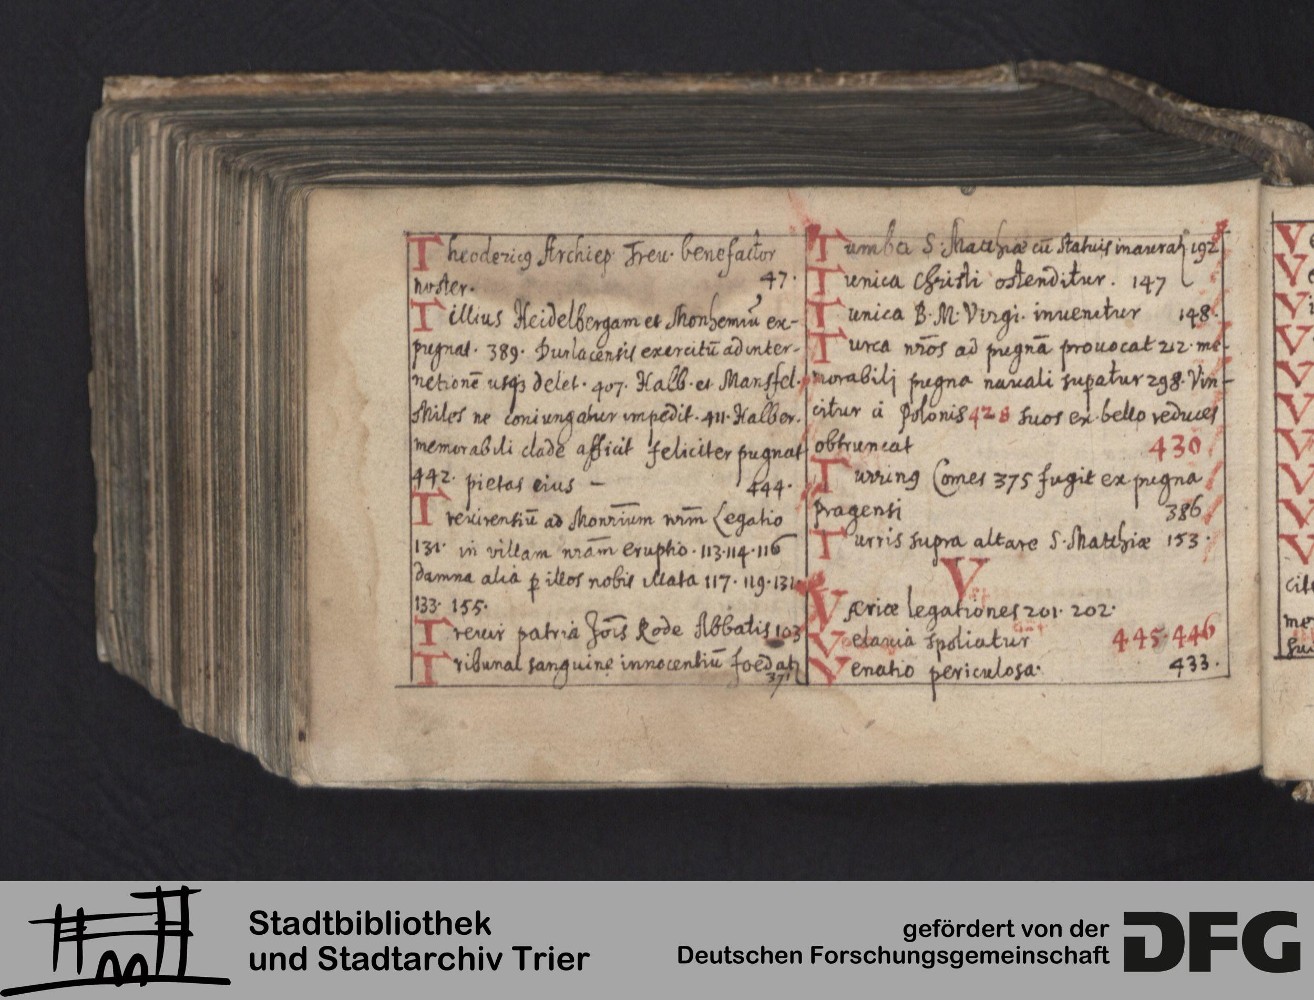 Theodericꝰ Archiep. Trev. benefactor
noster. 47.
Tillius Heidelbergam et Monhemiū ex-
pugnat. 389. Durlacensis exercitū ad inter-
netionē usqꝫ delet. 407. Halb. et Mansfel.
Milites ne coniungatur impedit. 411. Halber.
memorabili clade afficit feliciter pugnat
442. pietas eius – 444.
Trevirensiū ad Monr̄ium nr̄m Legatio
131. in villam nr̄am eruptio. 113. 114. 116
damna alia p illos nobis illata 117. 119. 131
133. 155.
Trevir patria Joīs Rode Abbatis 103
Tribunal sanguine innocentiū foedat
371
Tumba S. Matthiæ cū statuis inaurat 192
Tunica Christi ostenditur. 147
Tunica B. M. Virgi. invenitur 148.
Turca nr̄os ad pugnā provocat 212. me-
morabili pugna navali supatur 298. Vin-
citur à Polonis 428 suos ex bello reduces
obtruncat 430
Turringꝰ Comes 375 fugit ex pugna
Pragensi 386
Turris supra altare S. Matthiæ 153.
V
Væriæ legationes 201. 202.
Velavia spoliatur 445. 446
Venatio periculosa. 433.
V
V
V
V
V
V
V
V
V
V
cit
me
Stadtbibliothek
und Stadtarchiv Trier
gefördert von der
Deutschen Forschungsgemeinschaft
DFG